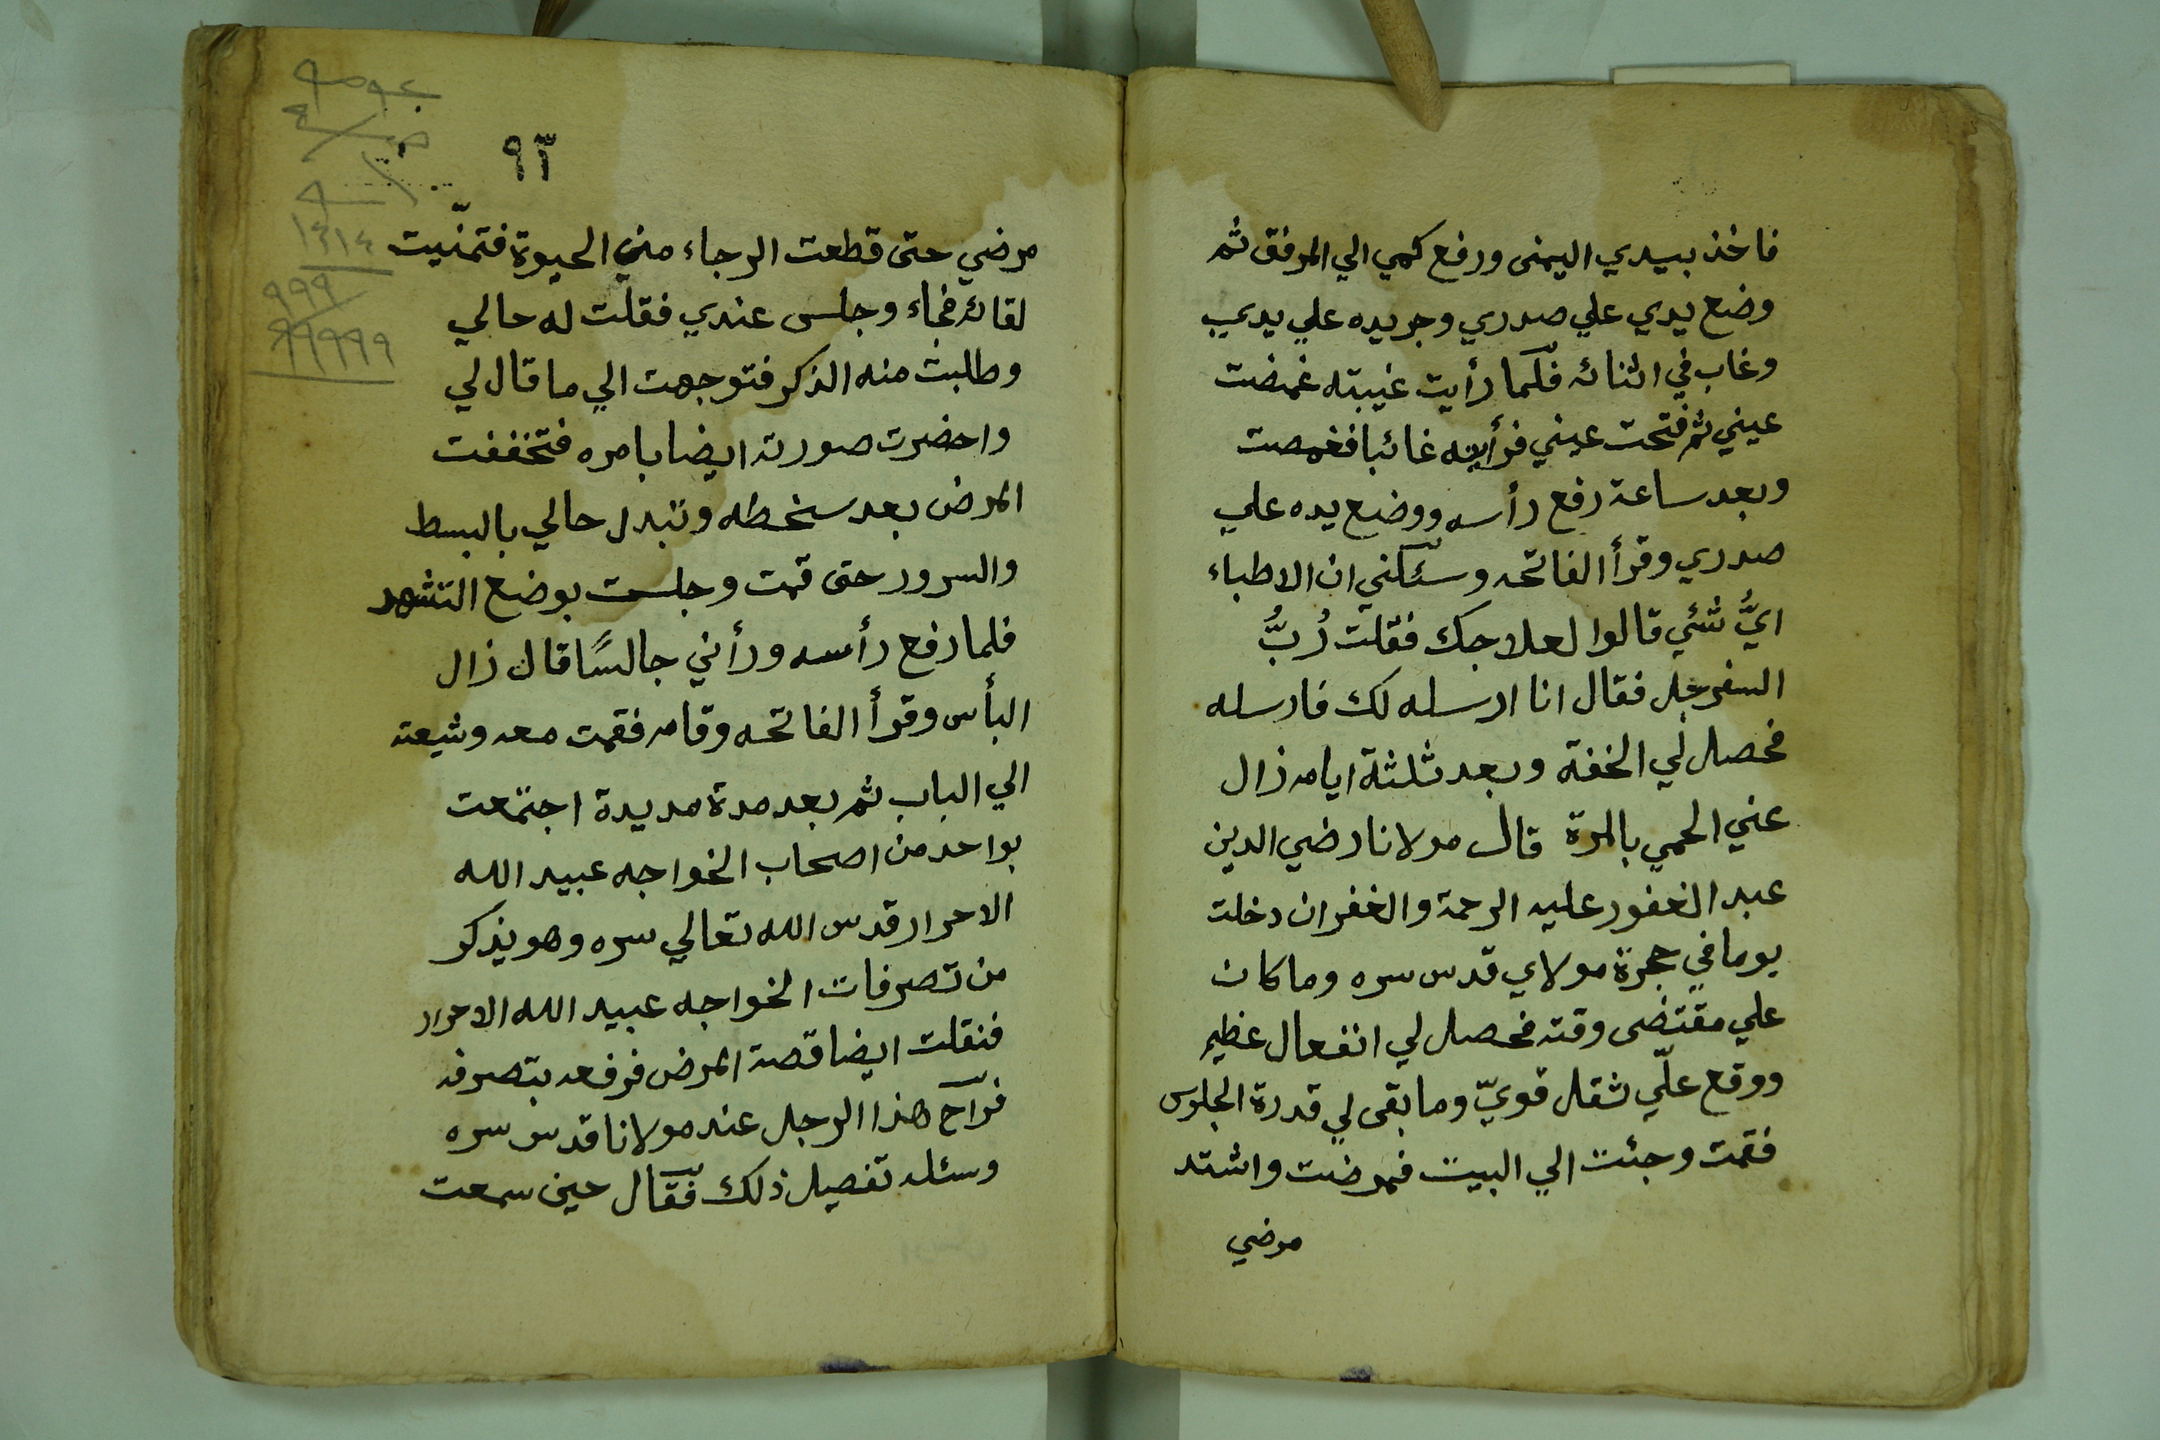 فاخذ بيدي اليمنى ورفع كمي الي المرفق ثم
وضع يدي علي صدري وجر يده علي يدي
وغاب في اثنائه فلما رأيت غيبته غمضت
عيني ثم فتحت عيني فرأيته غائبا فغمصت
وبعد ساعة رفع رأسه ووضع يده علي
صدري وقرأ الفاتحه وسئلني ان الاطباء
ايُّ شئي قالوا لعلاجك فقلت رُبُّ
السفرجل فقال انا ارسله لك فارسله
فحصل لي الخفة وبعد ثلثة ايام زال
عني الحمي بالمرة قال مولانا رضي الدين
عبد الغفور عليه الرحمة والغفران دخلت
يوما في حجرة مولاي قدس سره وما كان
علي مقتضى وقته فحصل لي انفعال عظيم
ووقع عليّ ثقل قويّ وما بقى لي قدرة الجلوس
فقمت وجئت الي البيت فمرضت واشتد
مرضي
٩٣
مرضي حتى قطعت الرجاء مني الحيوة فتمنّيت
لقائه فجاء وجلس عندي فقلت له حالي
وطلبت منه الذكر فتوجهت الي ما قال لي
واحضرت صورته ايضا بامره فتخففت
المرض بعد سخطه وتبدل حالي بالبسط
والسرور حتى قمت وجلست بوضع التشهد
فلما رفع رأسه ورأني جالسًا قال زال
البأس وقرأ الفاتحه وقام فقمت معه وشيعته
الي الباب ثم بعد مدة مديدة اجتمعت
بواحد من اصحاب الخواجه عبيد الله
الاحرار قدس الله تعالي سره وهو يذكر
من تصرفات الخواجه عبيد الله الاحرار
فنقلت ايضا قصة المرض فرفعه بتصرفه
فراح هذا الرجل عند مولانا قدس سره
وسئله تفصيل ذلك فقال حين سمعت
١٤١٤
٩٩٩
٩٩٩٩٩